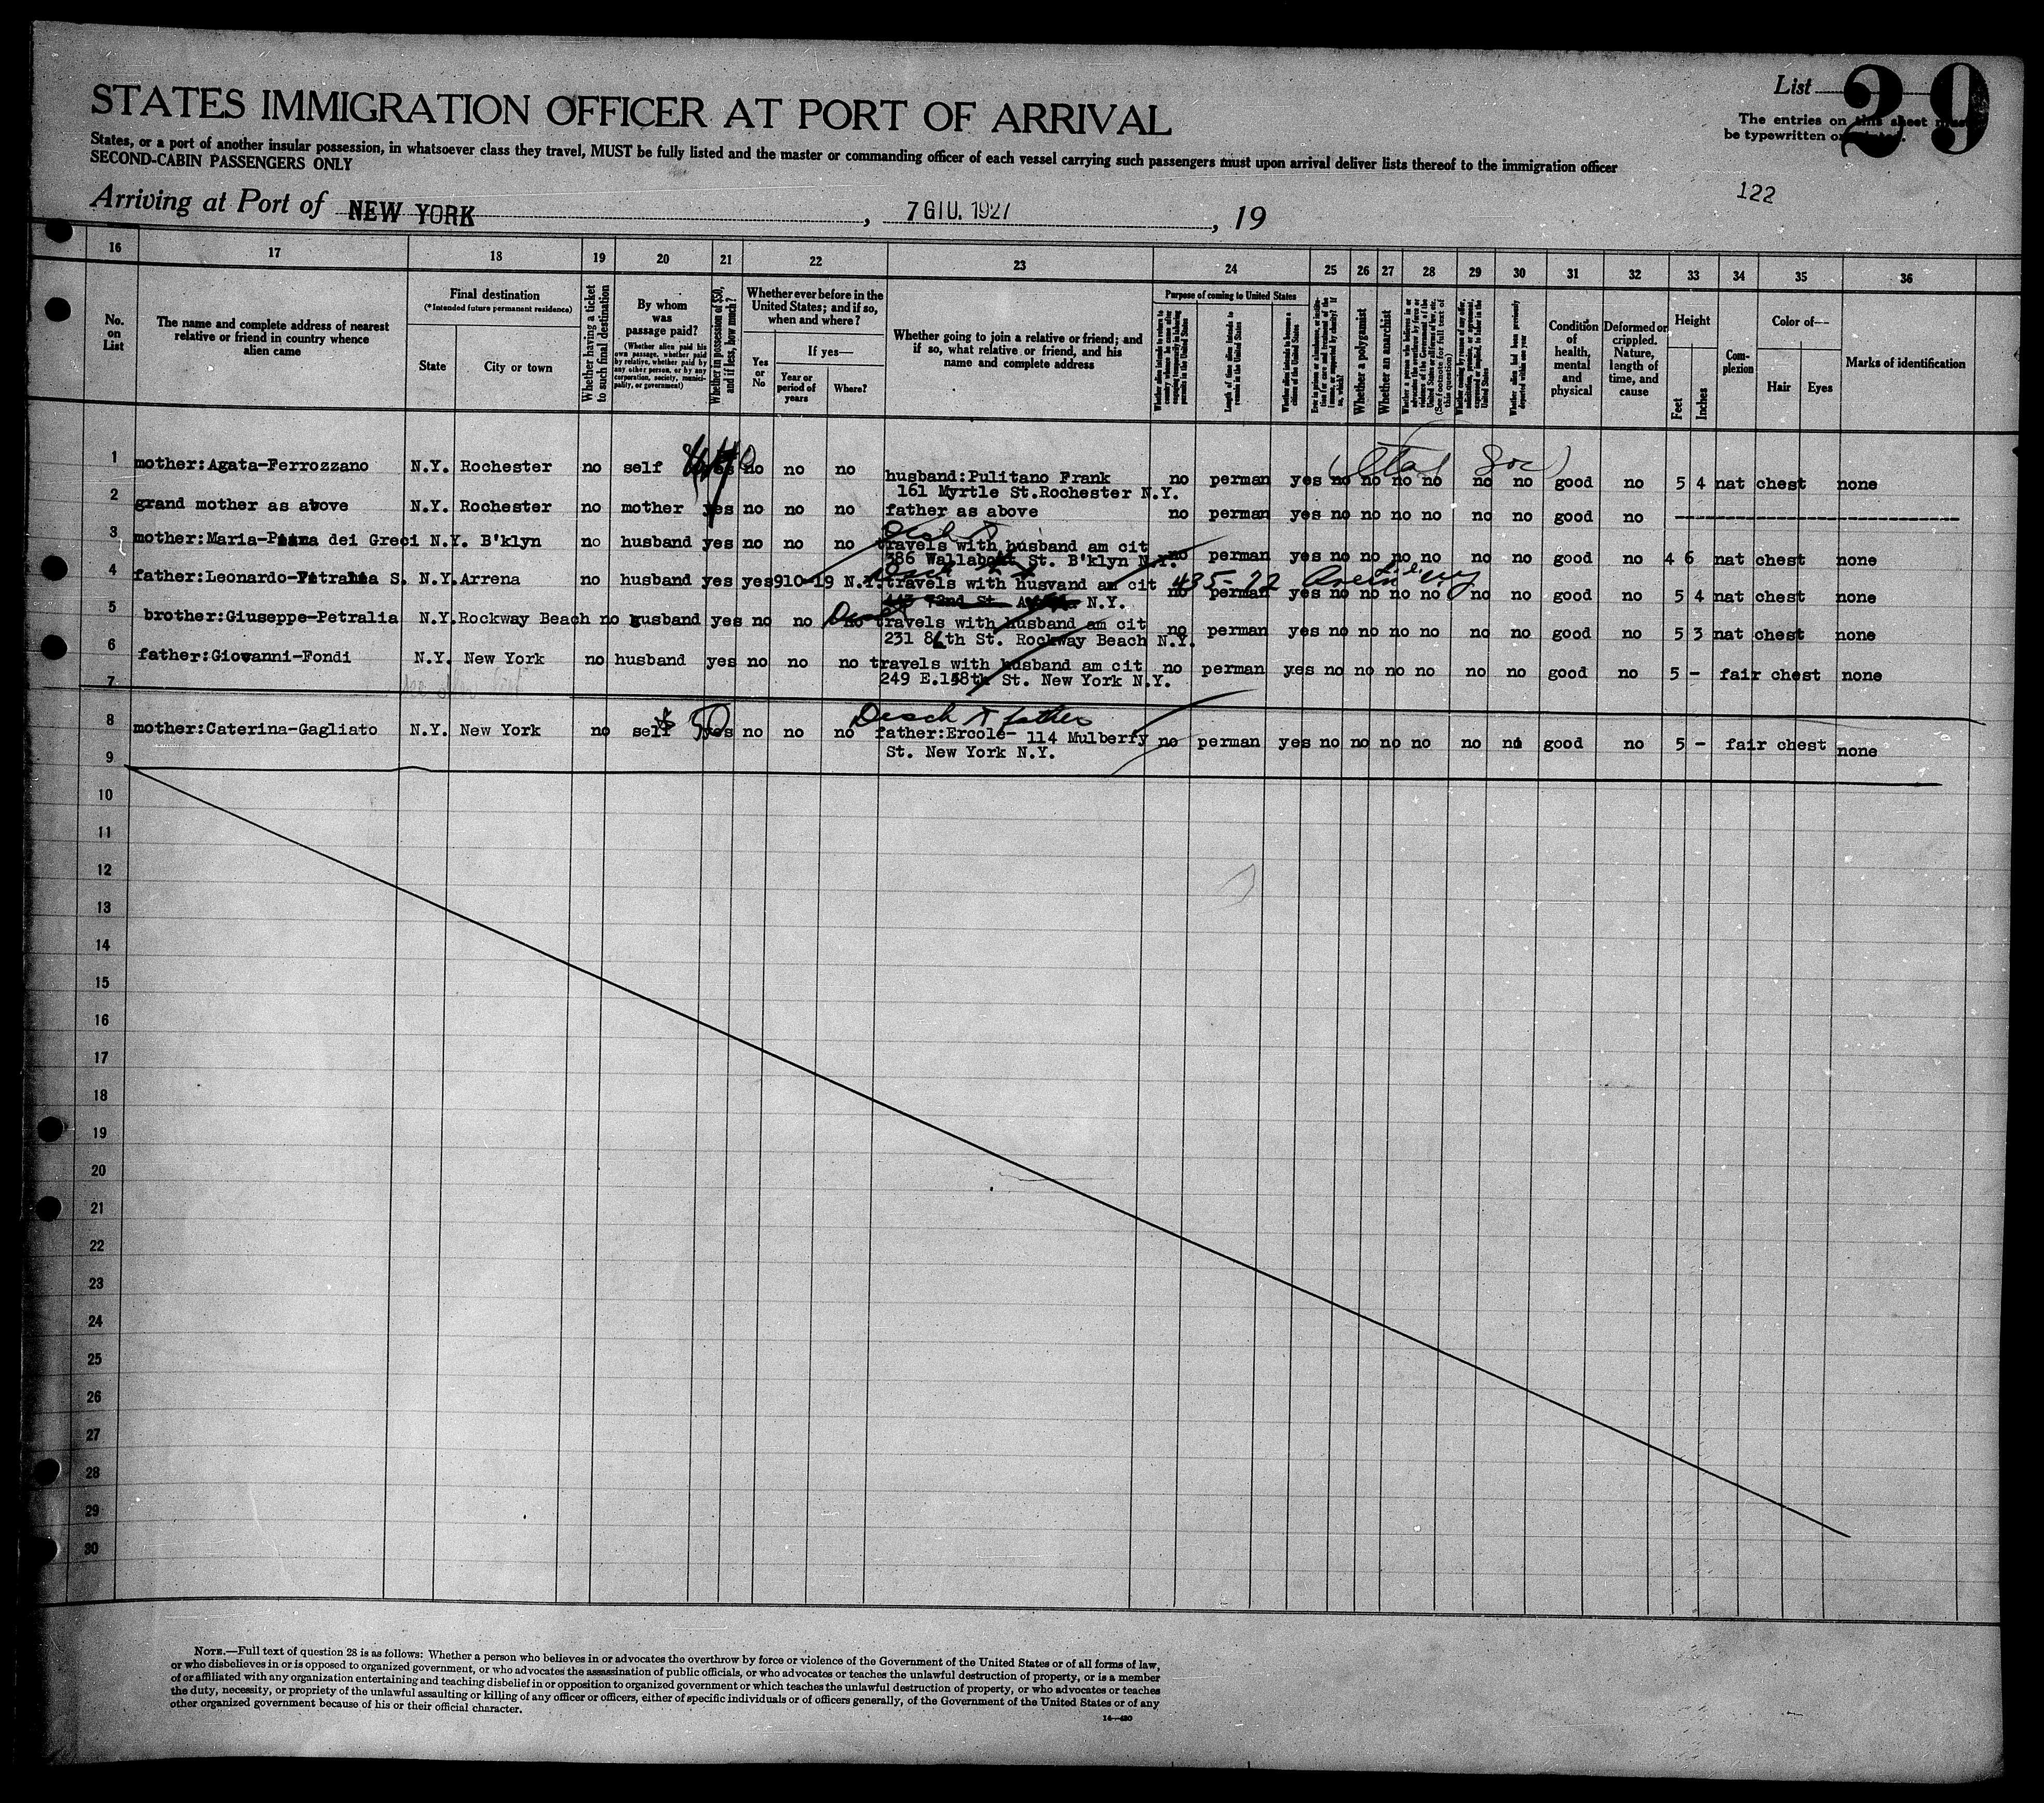 List 29
STATES IMMIGRATION OFFICER AT PORT OF ARRIVAL
The entries on this sheet must
be typewritten or
States, or a port of another insular possession, in whatsoever class they travel, MUST be fully listed and the master or commanding officer of each vessel carrying such passengers must upon arrival deliver lists thereof to the immigration officer
SECOND-CABIN PASSENGERS ONLY
122
Arriving at Port of NEW YORK, 7 GIU. 1927, 19
16 17 18 19 20 21 22 23 24 25 26 27 28 29 30 31 32 33 34 35 36
No. on List
The name and complete address of nearest relative or friend in country whence alien came
Final destination
(*Intended future permanent residence)
State
City or town
Whether having a ticket to such final destination
By whom was passage paid?
(Whether alien paid his own passage, whether paid by relative, whether paid by any other person, or by any corporation, society, municipality, or government)
Whether in possession of $50, and if less, how much?
Whether ever before in the United States; and if so, when and where?
Yes or No
If yes—
Year or period of years
Where?
Whether going to join a relative or friend; and if so, what relative or friend, and his name and complete address
Purpose of coming to United States
Length of time alien intends to remain in the United States
Whether alien intends to become a citizen of the United States
Whether a polygamist
Whether an anarchist
(See footnote for full text of this question)
Condition of health, mental and physical
Deformed or crippled. Nature, length of time, and cause
Height
Feet
Inches
Complexion
Color of—
Hair
Eyes
Marks of identification
1 mother:Agata-Ferrozzano N.Y. Rochester no self no no no husband:Pulitano Frank no perman yes no no no no no no good no 5 4 nat chest none
161 Myrtle St.Rochester N.Y.
2 grand mother as above N.Y. Rochester no mother yes no no no father as above no perman yes no no no no no no good no
3 mother:Maria-Piana dei Greci N.Y. B'klyn no husband yes no no no travels with husband am cit no perman yes no no no no no no good no 4 6 nat chest none
386 Wallabout St. B'klyn N.Y.
4 father:Leonardo-Petralia S. N.Y. Arrena no husband yes yes 910-19 N.Y. travels with husvand am cit no perman yes no no no no no no good no 5 4 nat chest none
72nd St. N.Y.
435-72
5 brother:Giuseppe-Petralia N.Y. Rockway Beach no husband yes no no no travels with husband am cit no perman yes no no no no no no good no 5 3 nat chest none
231 86th St. Rockway Beach N.Y.
6 father:Giovanni-Fondi N.Y. New York no husband yes no no no travels with husband am cit no perman yes no no no no no no good no 5 - fair chest none
249 E.158th St. New York N.Y.
7
Desch father
8 mother:Caterina-Gagliato N.Y. New York no self $50 yes no no no father:Ercole- 114 Mulberry no perman yes no no no no no no good no 5 - fair chest none
St. New York N.Y.
9
10
11
12
13
14
15
16
17
18
19
20
21
22
23
24
25
26
27
28
29
30
NOTE.—Full text of question 28 is as follows: Whether a person who believes in or advocates the overthrow by force or violence of the Government of the United States or of all forms of law,
or who disbelieves in or is opposed to organized government, or who advocates the assassination of public officials, or who advocates or teaches the unlawful destruction of property, or is a member
of or affiliated with any organization entertaining and teaching disbelief in or opposition to organized government or which teaches the unlawful destruction of property, or who advocates or teaches
the duty, necessity, or propriety of the unlawful assaulting or killing of any officer or officers, either of specific individuals or of officers generally, of the Government of the United States or of any
other organized government because of his or their official character.
14—430